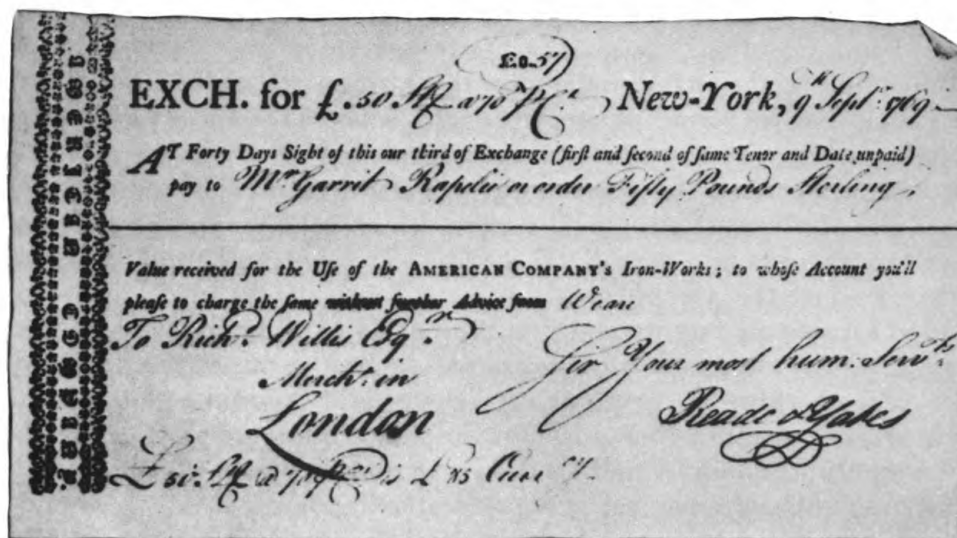 AMERICAN COMPANY.
Eo. 57
EXCH. for £.50 Stg a 70 P Ct New-York, 9th Septr. 1769
AT Forty Days Sight of this our third of Exchange (first and second of same Tenor and Date unpaid)
pay to Mr Garrit Rapelie or order Fifty Pounds Sterling.
Value received for the Use of the AMERICAN COMPANY'S Iron-Works; to whose Account you'll
please to charge the same without further Advice from We are
To Richd. Willis Esqr. Sir Your most hum. Servts
Mercht. in
London Reade & Yates
£50 Stg a 70 P Ct is £85 Curry.